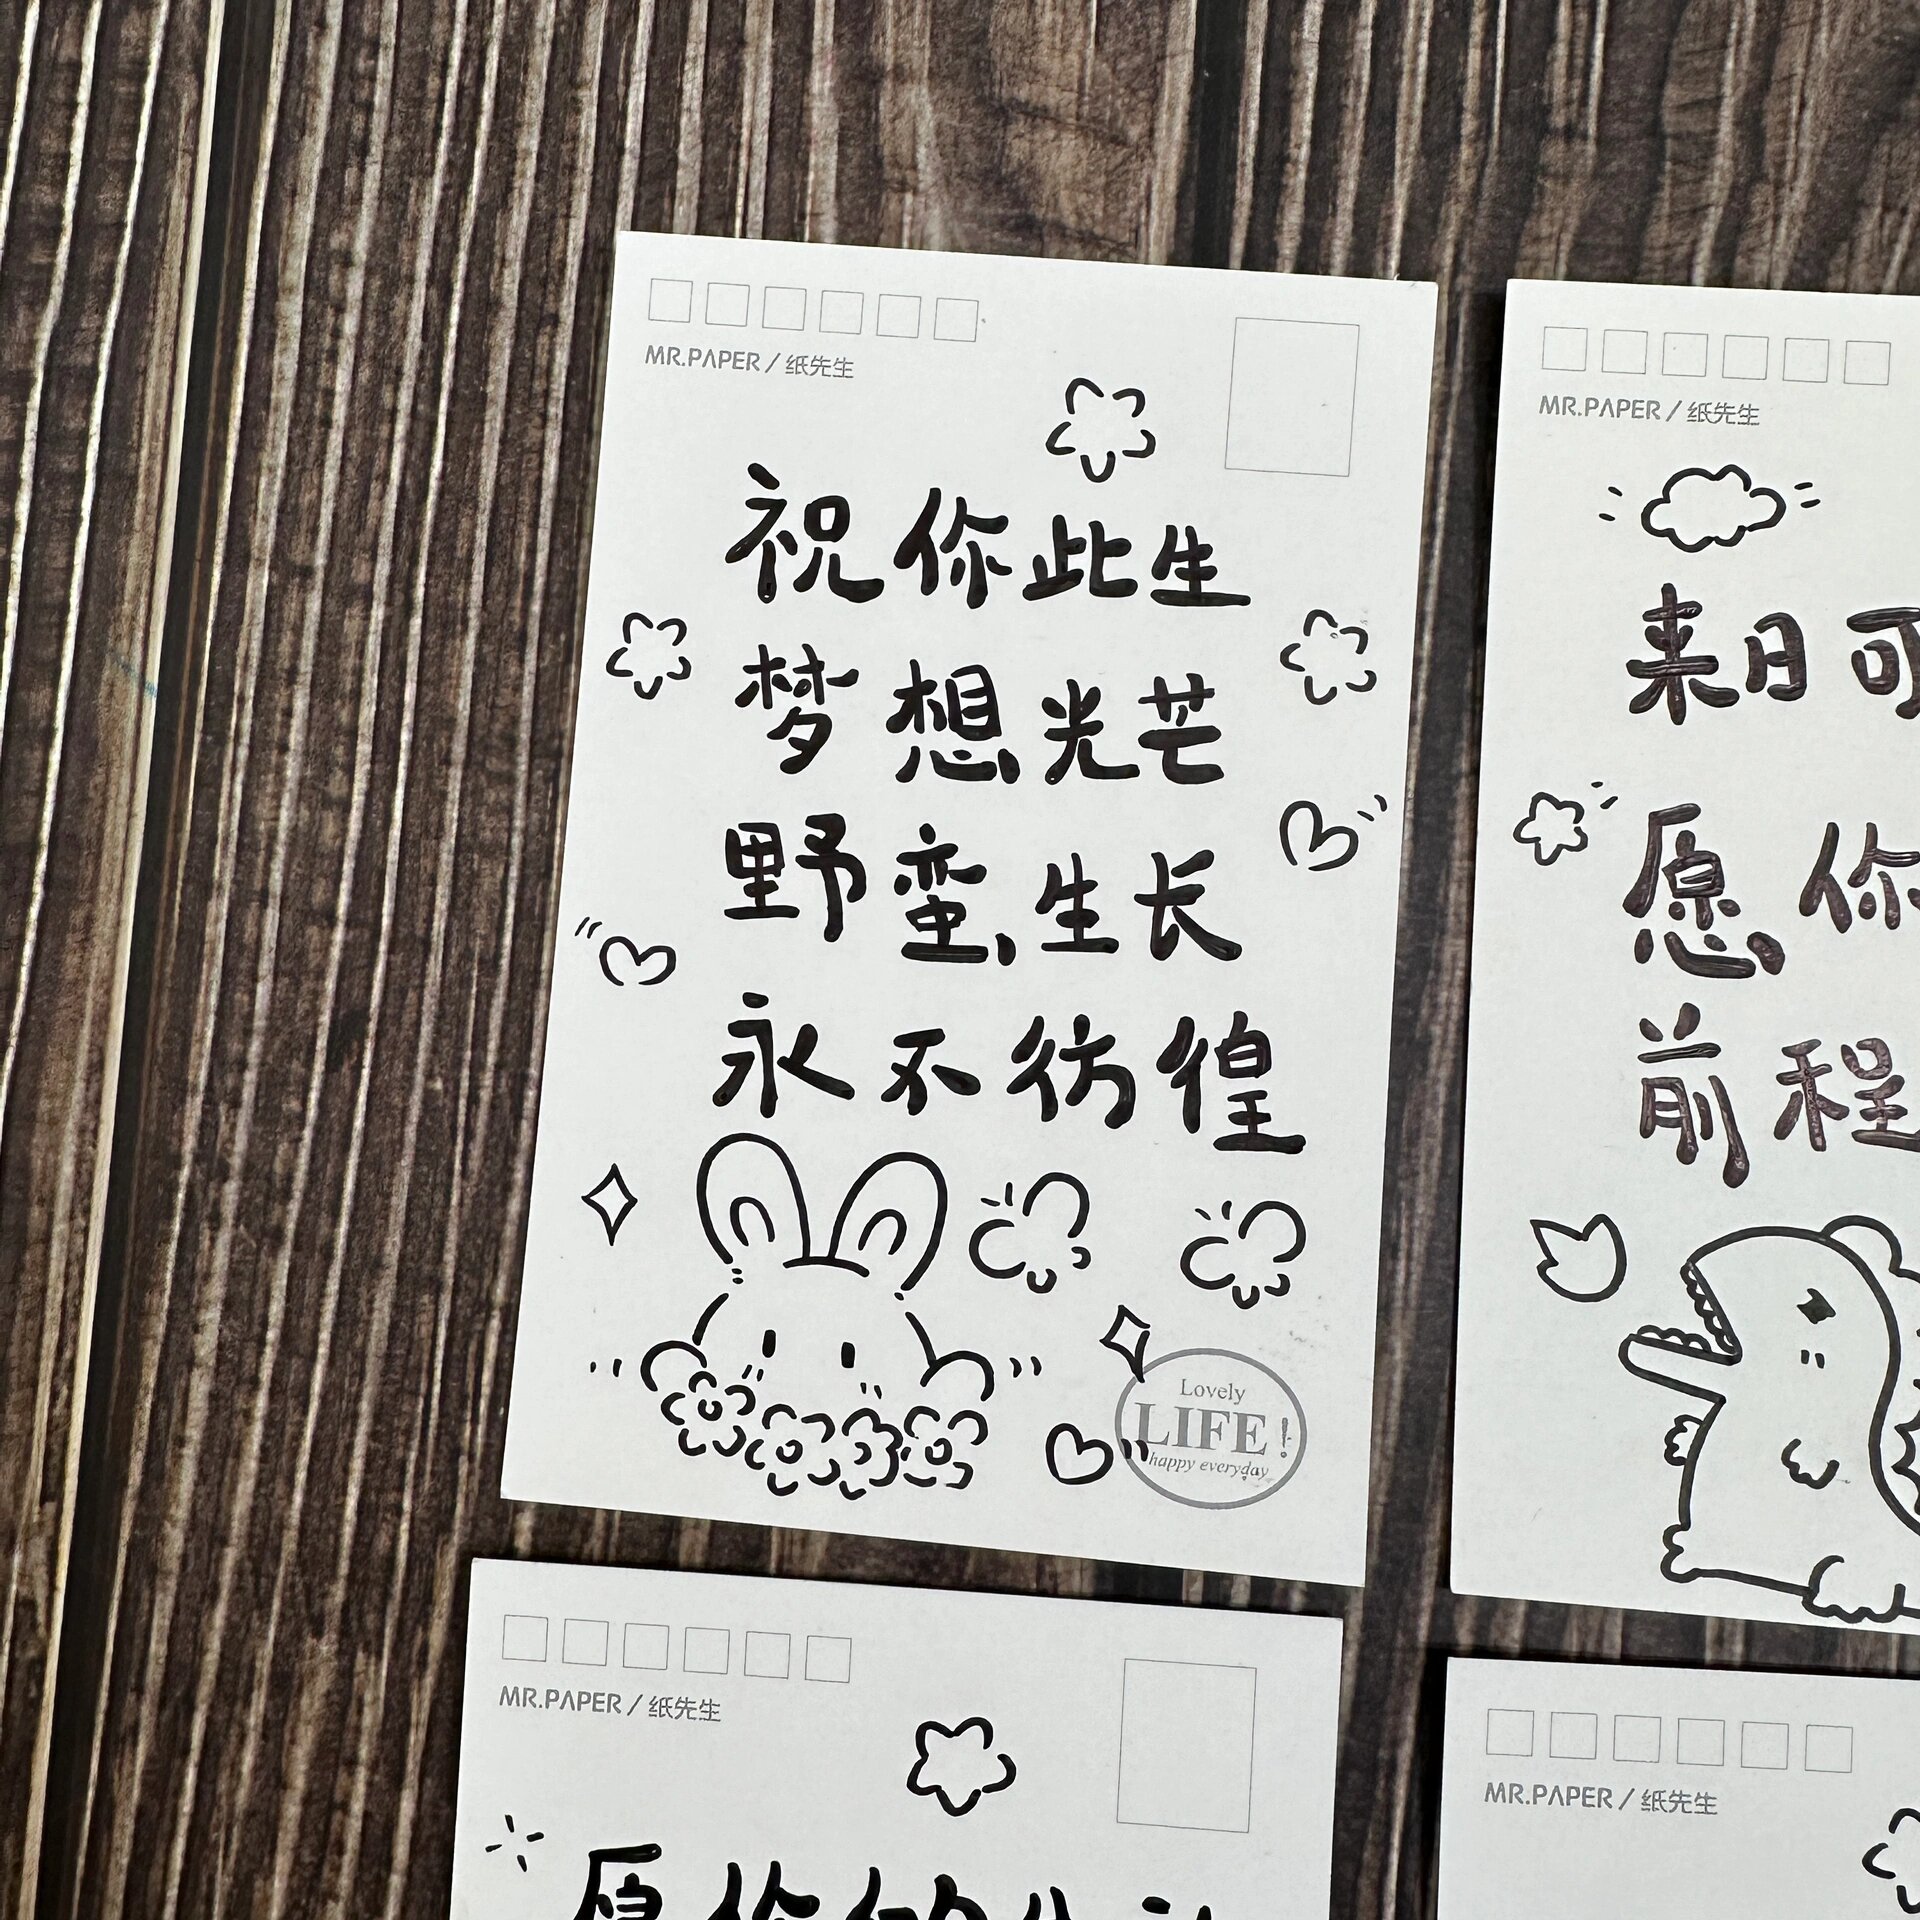 MR.PAPER / 纸先生
祝你此生
梦想光芒
野蛮生长
永不彷徨
Lovely
LIFE!
happy everyday
MR.PAPER / 纸先生
来日可
愿你
前程
MR.PAPER / 纸先生
愿你的
MR.PAPER / 纸先生